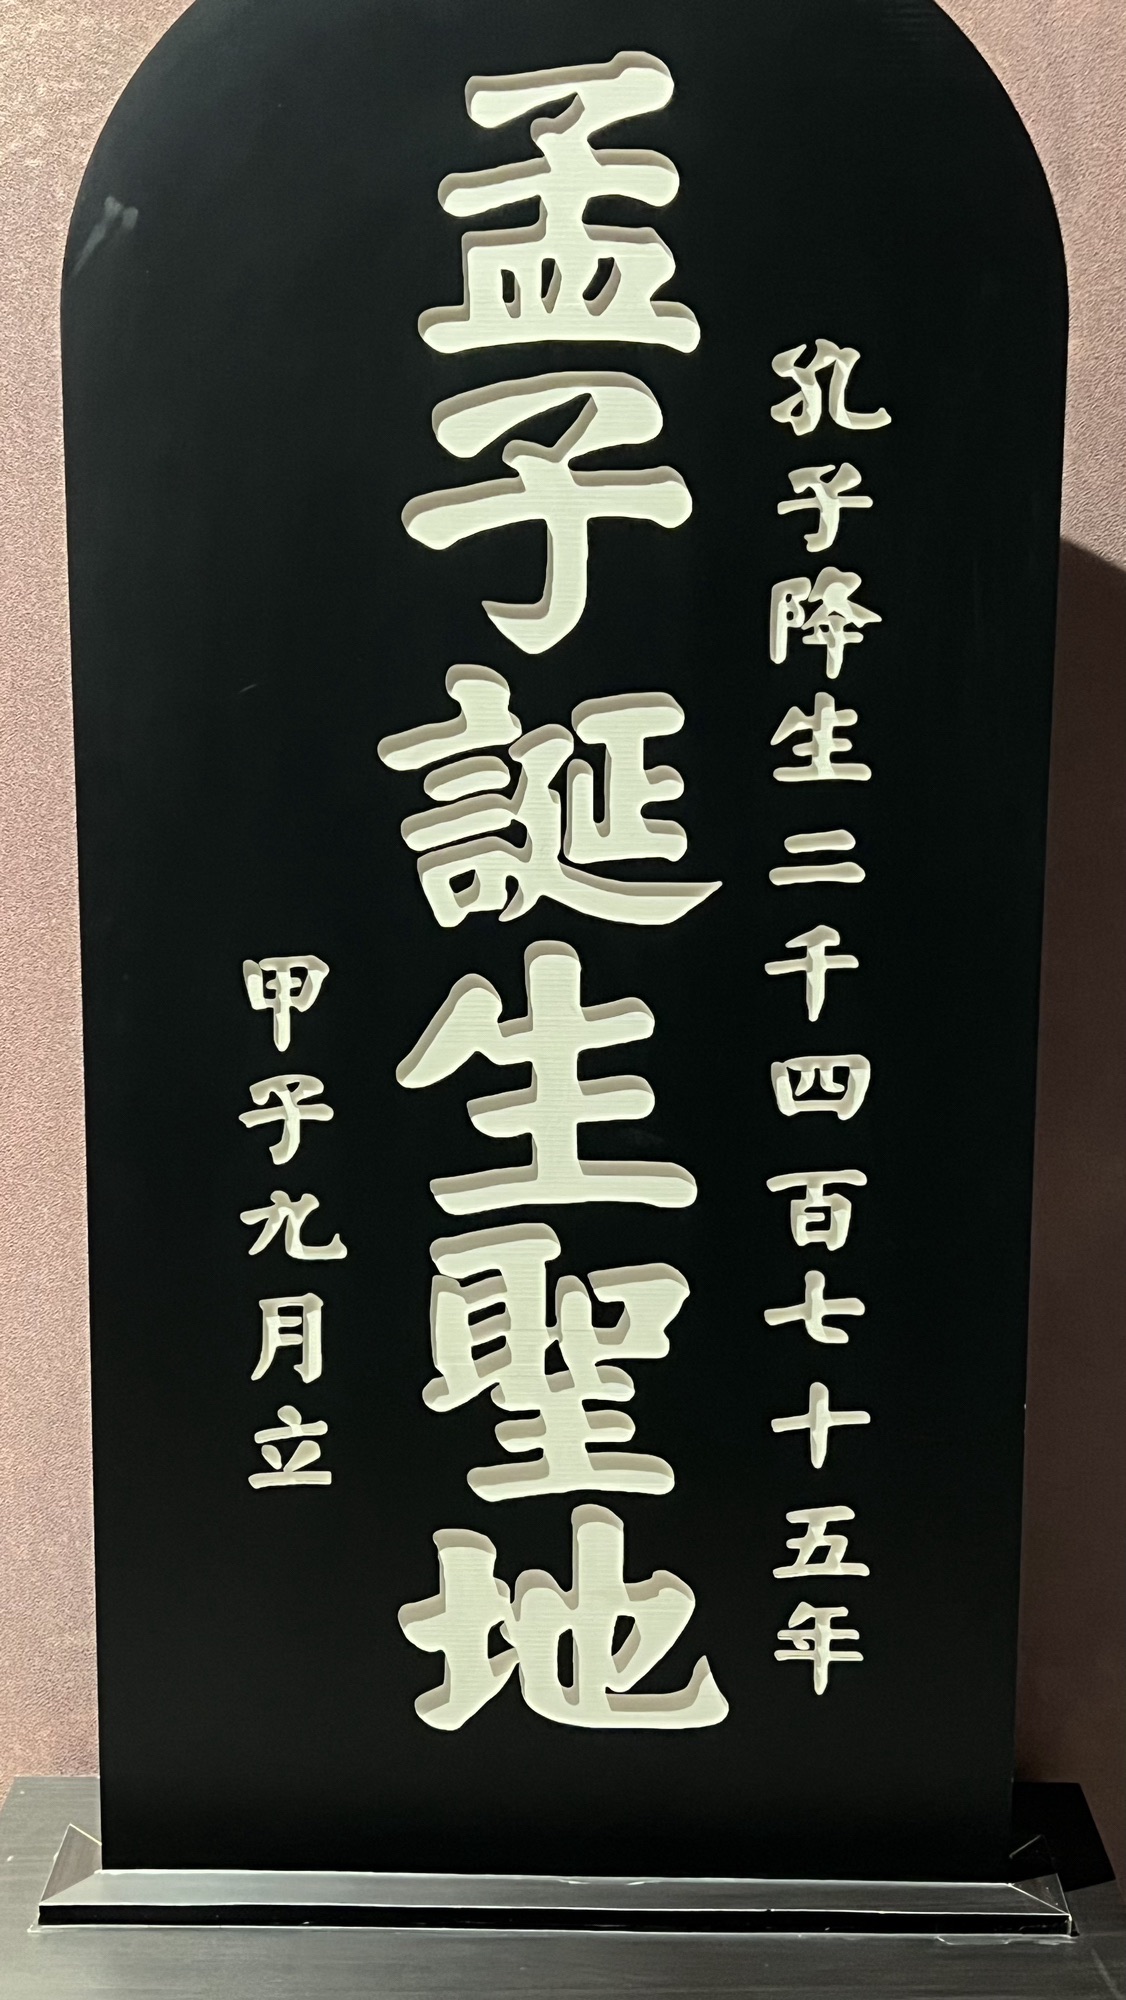 孔子降生二千四百七十五年
孟子誕生聖地
甲子九月立